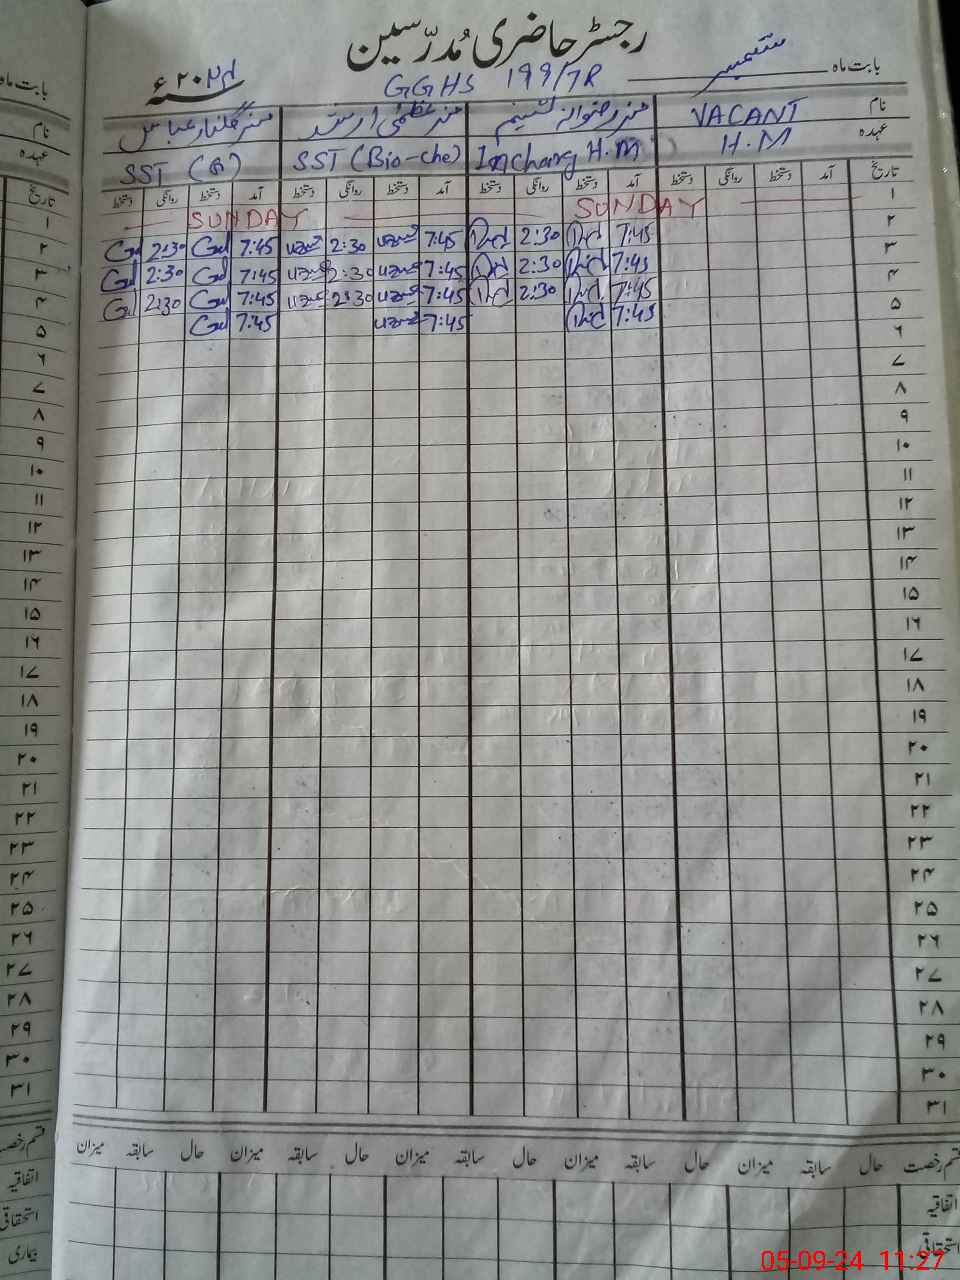 رجسٹر حاضری مُدرّسین
بابت ماہ ستمبر GGHS 199/7R ۲۰۲۴ء
نام VACANT مسز رضوانہ تسنیم مسز عظمیٰ ارشد مسز گلنار عباس
عہدہ H.M Incharg H.M SST (Bio-che) SST (G)
تاریخ آمد دستخط روانگی دستخط آمد دستخط روانگی دستخط آمد دستخط روانگی دستخط آمد دستخط روانگی دستخط
۱ SUNDAY SUNDAY
۲ 7:45 2:30 7:45 2:30 7:45 Gul 2:30 Gul
۳ 7:45 2:30 7:45 2:30 7:45 Gul 2:30 Gul
۴ 7:45 2:30 7:45 2:30 7:45 Gul 2:30 Gul
۵ 7:45 7:45 7:45 Gul
۶
۷
۸
۹
۱۰
۱۱
۱۲
۱۳
۱۴
۱۵
۱۶
۱۷
۱۸
۱۹
۲۰
۲۱
۲۲
۲۳
۲۴
۲۵
۲۶
۲۷
۲۸
۲۹
۳۰
۳۱
قسم رخصت حال سابقہ میزان حال سابقہ میزان حال سابقہ میزان حال سابقہ میزان حال سابقہ میزان
اتفاقیہ
استحقاقی
بابت ماہ
نام
عہدہ
تاریخ
۱
۲
۳
۴
۵
۶
۷
۸
۹
۱۰
۱۱
۱۲
۱۳
۱۴
۱۵
۱۶
۱۷
۱۸
۱۹
۲۰
۲۱
۲۲
۲۳
۲۴
۲۵
۲۶
۲۷
۲۸
۲۹
۳۰
۳۱
قسم رخصت
اتفاقیہ
استحقاقی
بیماری
05-09-24 11:27